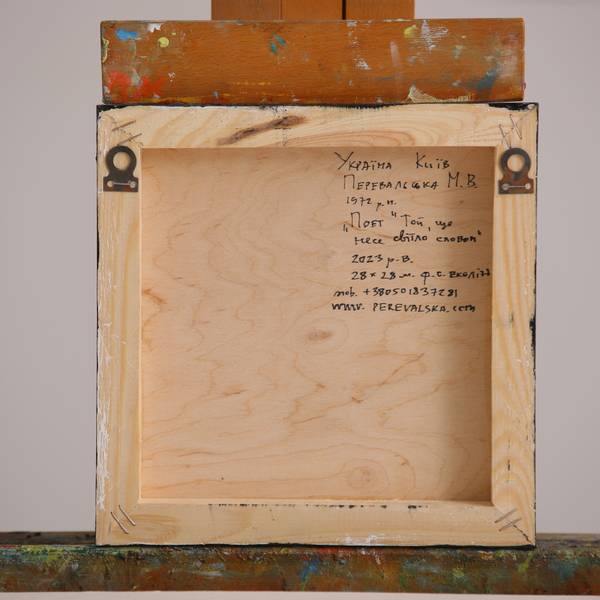 Україна Київ
Перевальська М.В.
1972 р.н.
„Поет" Той, що
несе світло словом"
2023 р.в.
28×28 м. ф.с.
mob. +380501837281
www. PEREVALSKA.com